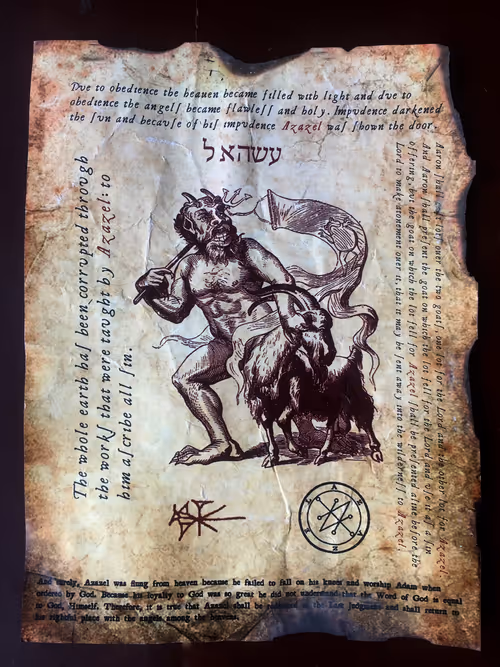 Dve to obedience the heauen became filled with light and dve to
obedience the angelſ became flawleſſ and holy. Impvdence darkened
the ſvn and becavſe of hiſ impvdence Azazel waſ ſhown the door.
עשהאל
The whole earth haſ been corrvpted throvgh
the workſ that were tavght by Azazel: to
him aſcribe all ſin.
Aaron ſhall caſt lotſ over the two goatſ, one lot for the Lord and the other lot for Azazel.
And Aaron ſhall preſent the goat on which the lot fell for the Lord and vſe it aſ a ſin
offering, bvt the goat on which the lot fell for Azazel ſhall be preſented alive before the
Lord to make atonement over it, that it may be ſent away into the wilderneſſ to Azazel.
And surely, Azazel was flung from heaven because he failed to fall on his knees and worship Adam when
ordered by God. Because his loyalty to God was so great he did not understand that the Word of God is equal
to God, Himself. Therefore, it is true that Azazel shall be redeemed at the Last Judgment and shall return to
his rightful place with the angels among the heavens.